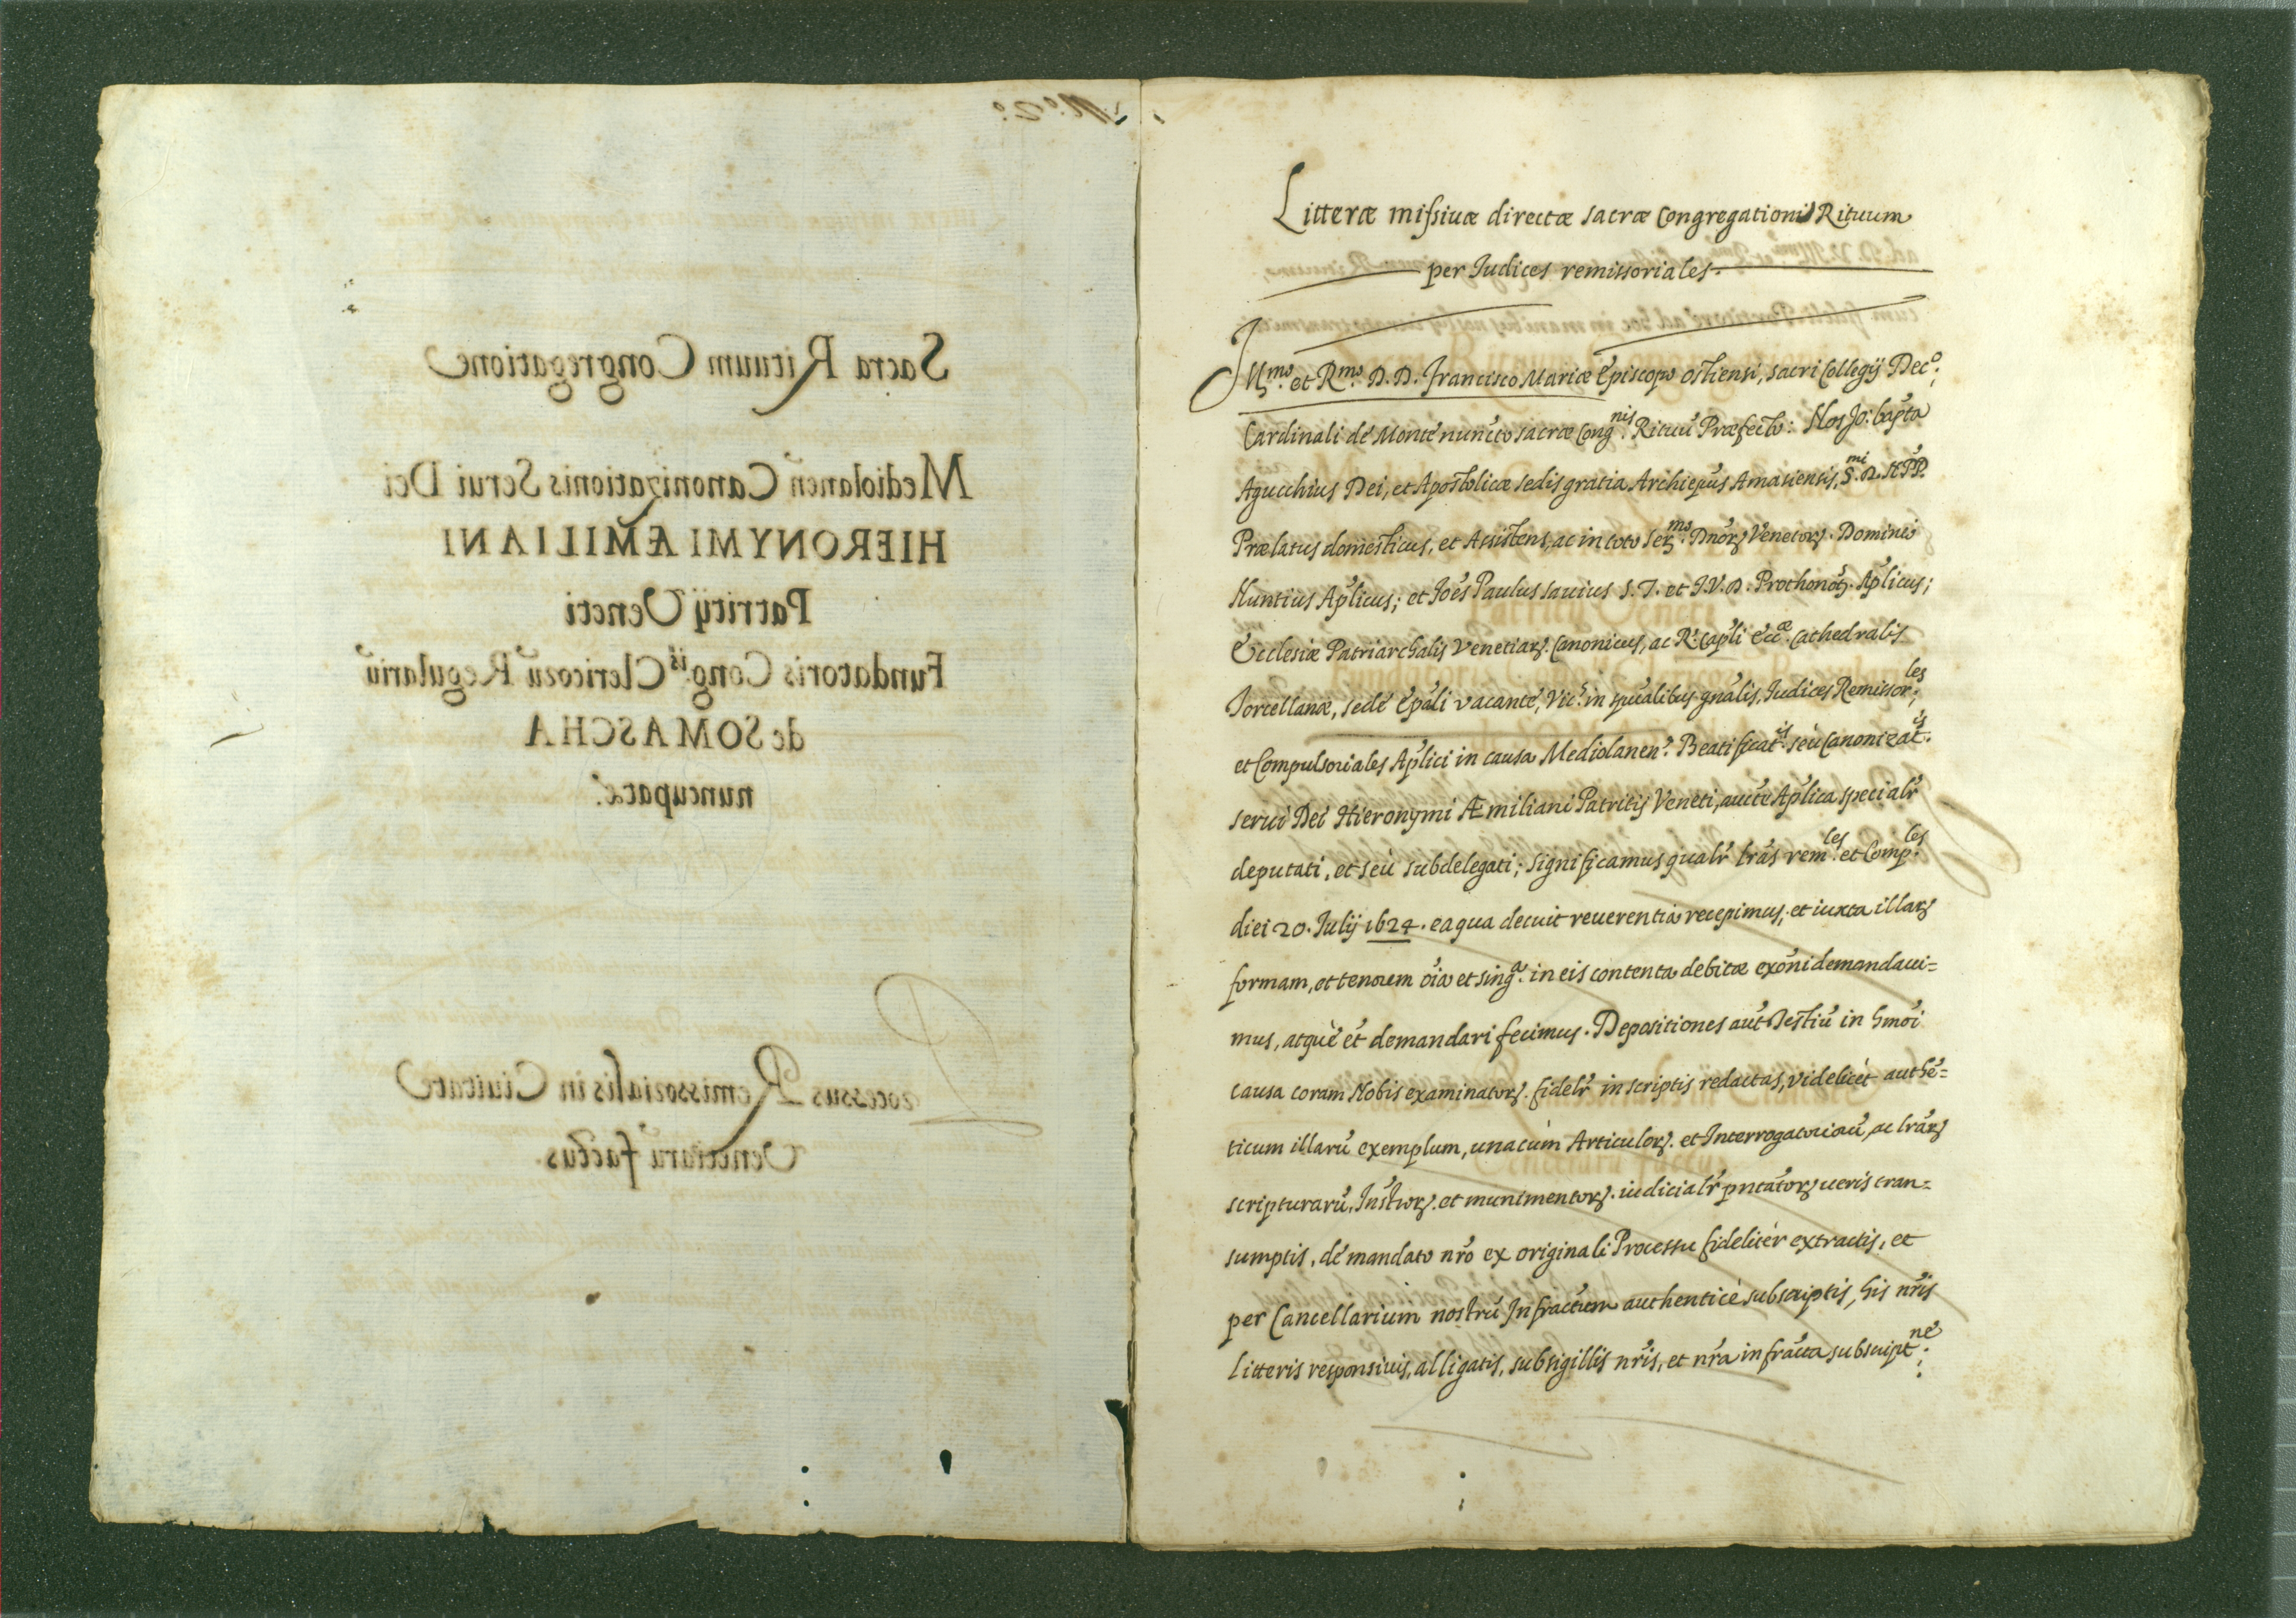 N.º 2.º
Sacra Rituum Congregatione
Mediolanen̄ Canonizationis Serui Dei
HIERONYMI ÆMILIANI
Patritij Veneti
Fundatoris Cong.ⁱˢ Clericorū Regulariū
de SOMASCHA
nuncupatæ.
Processus Remissorialis in Ciuitate
Venetiarū factus.
Litteræ missiuæ directæ sacræ Congregationis Rituum
per Iudices remissoriales.
Ill.ᵐᵒ et R.ᵐᵒ D. D. Francisco Mariæ Episcopo ostiensi, sacri Collegij Dec.º
Cardinali de Monte nuncto sacræ Cong.ⁿⁱˢ Rituū Præfecto: Nos Jo: bap̄ta
Agucchius Dei, et Apostolicæ sedis gratia Archiep̄us Amasiensis, S.ᵐⁱ D. N. PP.
Prælatus domesticus, et Assistens, ac in toto Ser.ᵐᵒ Dnōrꝫ Venetorꝫ. Dominio
Nuntius Ap̄licus; et Joēs Paulus sauius S. T. et I. V. D. Prothonotꝫ. Ap̄licus;
Ecclesiæ Patriarchalis Venetiarꝫ. Canonicus, ac R. Cap̄li Ecc.æ Cathedralis
Torcellanæ, sede Ep̄ali vacante, Vic.s in sp̄ualibus gn̄alis, Iudices Remissor.ˡᵉˢ;
et Compulsoriales Ap̄lici in causa Mediolanen̄. Beatificat.ⁱˢ seù Canonizat.ⁱˢ
serui Dei Hieronymi Æmiliani Patritij Veneti, aucte Ap̄lica specialr̄
deputati, et seù subdelegati; significamus qualr̄ lrās rem.ˡᵉˢ et Comp.ˡᵉˢ
diei 20. Iulij 1624. ea qua decuit reuerentia recepimus, et iuxta illarꝫ
formam, et tenorem oīa et sing.ᵃ in eis contenta debitæ exōni demandaui=
mus, atquè et̄ demandari fecimus. Depositiones aut̄ Testiū in hmōi
causa coram Nobis examinatorꝫ. fidelr̄ in scriptis redactas, videlicèt authē=
ticum illarū exemplum, unacùm Articulorꝫ. et Interrogatoriorū, ac lrārꝫ
scripturarū, Instrorꝫ. et munimentorꝫ. iudicialr̄ pn̄tatorꝫ ueris tran=
sumptis, de mandato nr̄o ex originali Processu fidelitèr extractis, et
per Cancellarium nostrū Infractum authenticè subscriptis, his nr̄is
litteris responsiuis, alligatis, sub sigillis nr̄is, et nr̄a infracta subscript.ⁿᵉ;